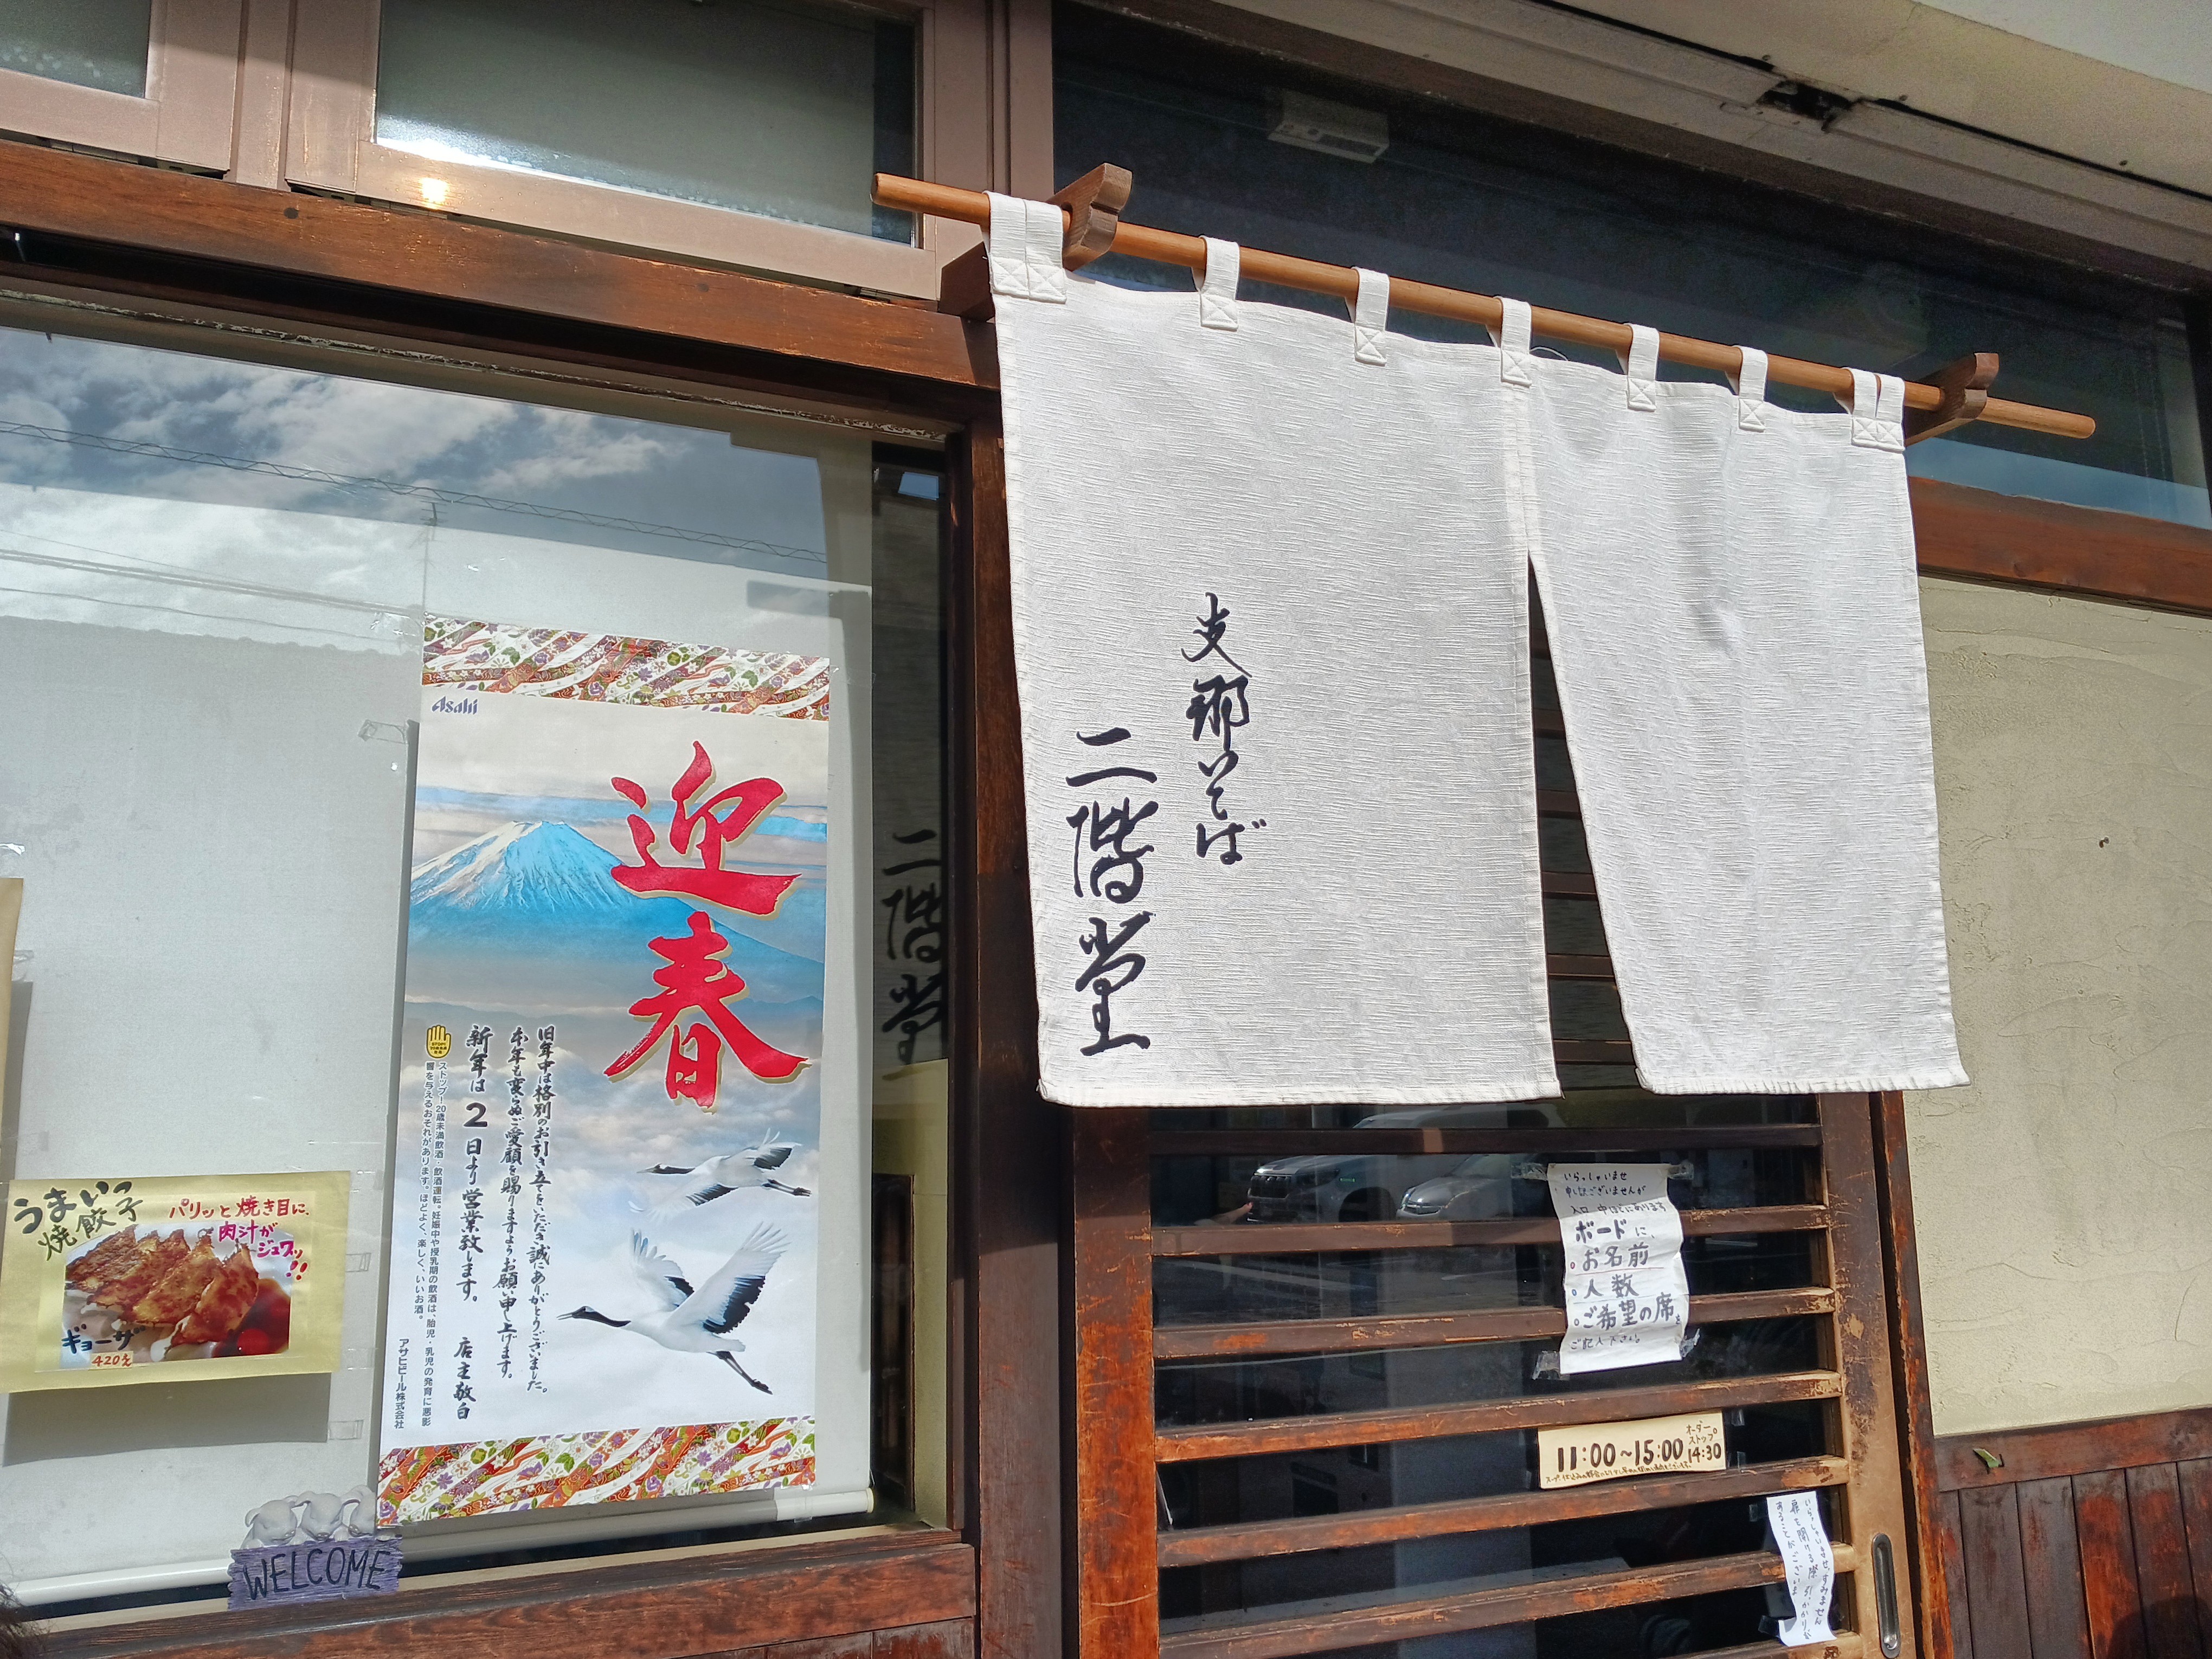 支那そば
二階堂
Asahi
迎春
旧年中は格別のお引き立てをいただき誠にありがとうございました。
本年も変らぬご愛顧を賜りますようお願い申し上げます。
新年は2日より営業致します。
店主敬白
ストップ!20歳未満飲酒・飲酒運転。妊娠中や授乳期の飲酒は、胎児・乳児の発育に悪影
響を与えるおそれがあります。ほどよく、楽しく、いいお酒。
アサヒビール株式会社
うまいっ
焼餃子
パリッと焼き目に、
肉汁が
ジュワッ!!
ギョーザ
420え
WELCOME
二階堂
いらっしゃいませ
申し訳ございませんが
入口、中ほどにあります
ボードに、
お名前
人数
ご希望の席を
ご記入下さい。
11:00~15:00
オーダー
ストップ
14:30
いらっしゃいませ、すみません
扉を開ける際、引っかかりが
あることがございま